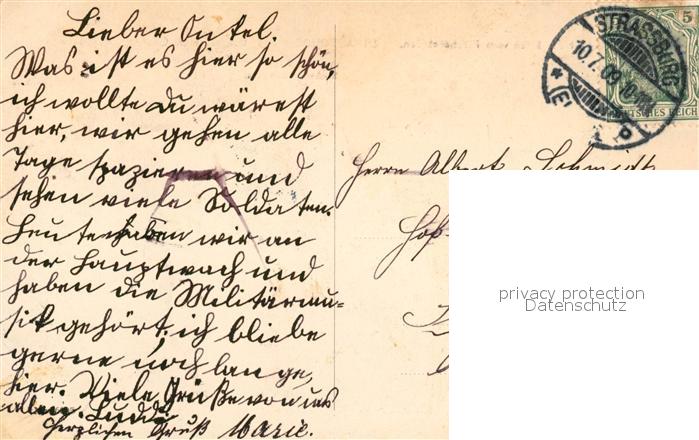 Lieber Onkel.
Was ist es hier so schön,
ich wollte du wärest
hier, wir gehen alle
Tage spazieren und
sehen viele Soldaten.
Heute haben wir an
der Hauptwach und
haben die Militärmu-
sik gehört, ich bliebe
gerne noch lange,
hier. Viele Grüße von uns
allen. Luddi
herzlichen Gruß Marie.
STRASSBURG
10.7.09.10
* (E
b
5
DEUTSCHES REICH
Herrn Albert Schmidt
Hof-
privacy protection
Datenschutz